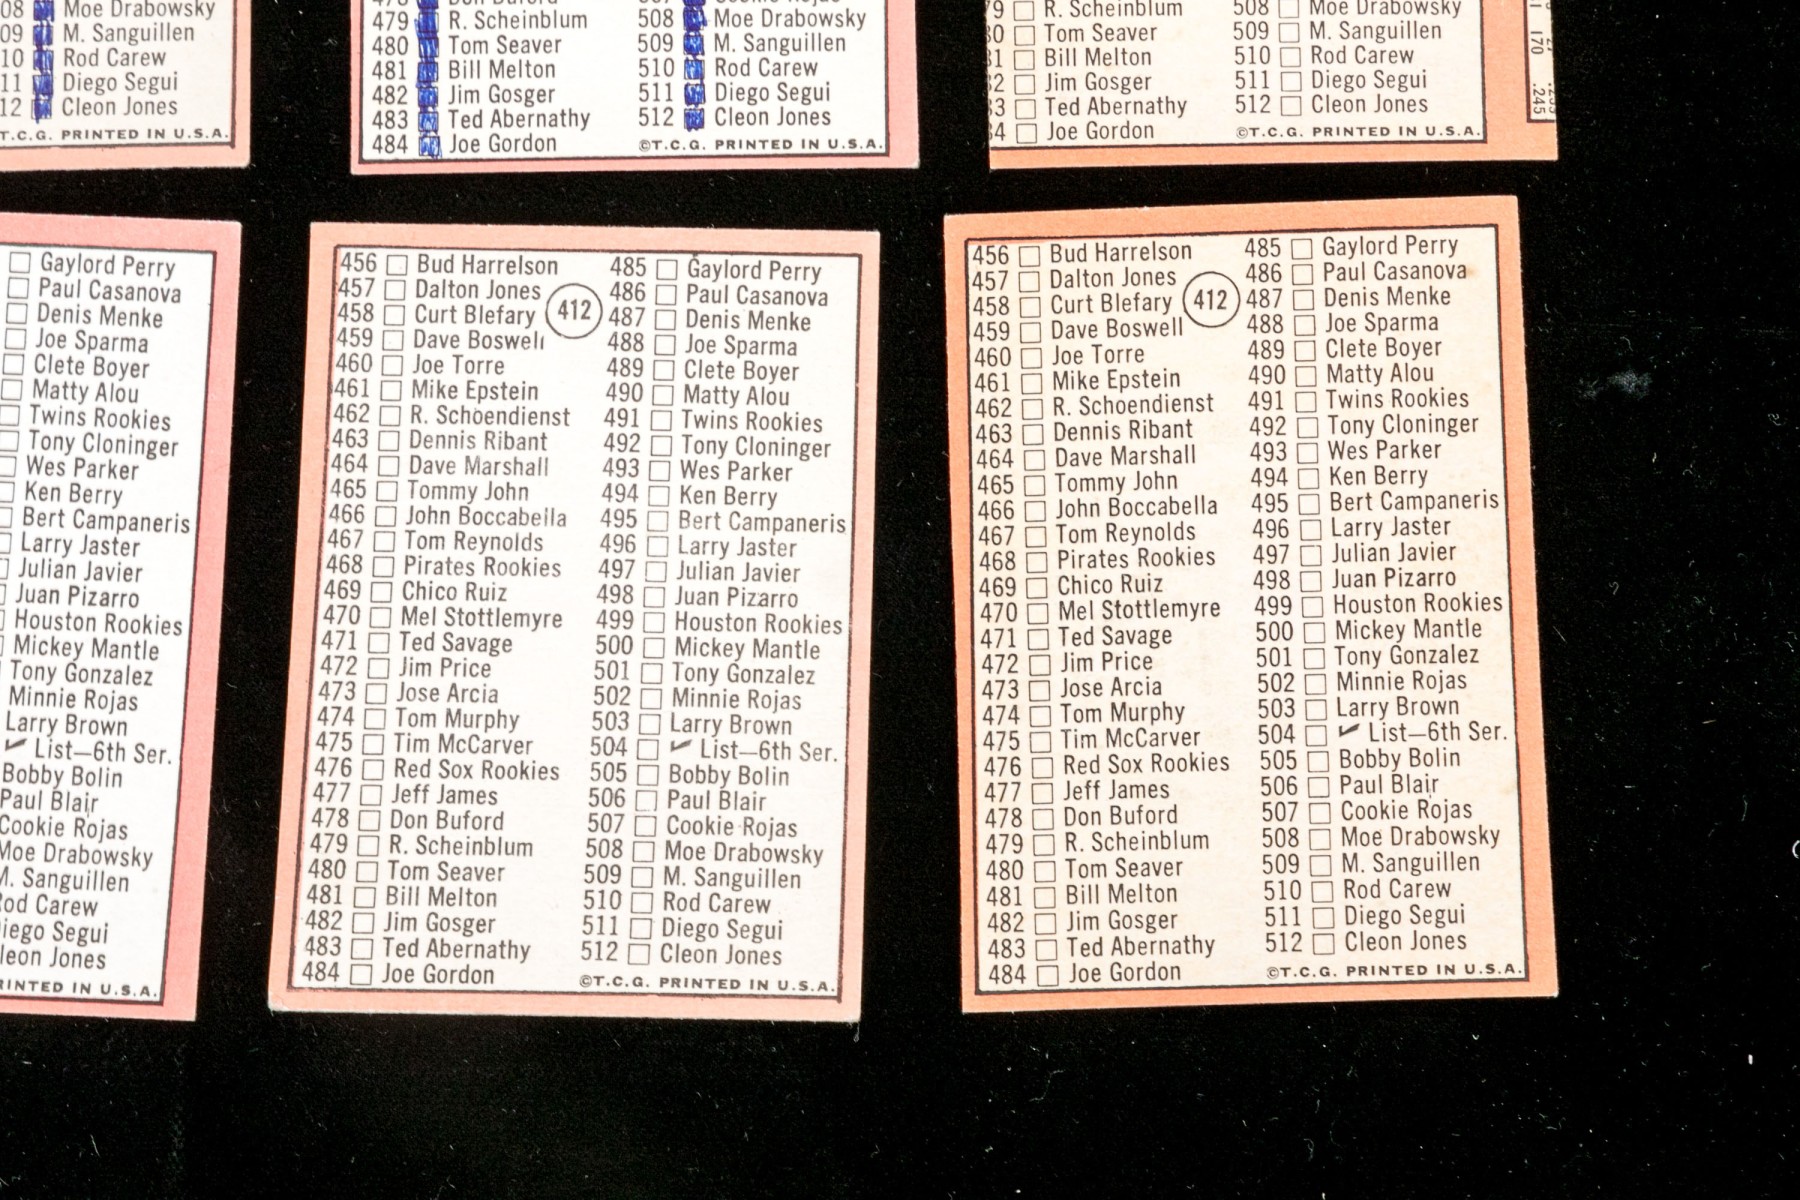 08 Moe Drabowsky
09 M. Sanguillen
10 Rod Carew
11 Diego Segui
12 Cleon Jones
T.C.G. PRINTED IN U.S.A.
479 R. Scheinblum
480 Tom Seaver
481 Bill Melton
482 Jim Gosger
483 Ted Abernathy
484 Joe Gordon
508 Moe Drabowsky
509 M. Sanguillen
510 Rod Carew
511 Diego Segui
512 Cleon Jones
©T.C.G. PRINTED IN U.S.A.
79 R. Scheinblum
80 Tom Seaver
81 Bill Melton
82 Jim Gosger
83 Ted Abernathy
84 Joe Gordon
508 Moe Drabowsky
509 M. Sanguillen
510 Rod Carew
511 Diego Segui
512 Cleon Jones
©T.C.G. PRINTED IN U.S.A.
170
.245
Gaylord Perry
Paul Casanova
Denis Menke
Joe Sparma
Clete Boyer
Matty Alou
Twins Rookies
Tony Cloninger
Wes Parker
Ken Berry
Bert Campaneris
Larry Jaster
Julian Javier
Juan Pizarro
Houston Rookies
Mickey Mantle
Tony Gonzalez
Minnie Rojas
Larry Brown
✓ List—6th Ser.
Bobby Bolin
Paul Blair
Cookie Rojas
Moe Drabowsky
M. Sanguillen
Rod Carew
Diego Segui
Cleon Jones
PRINTED IN U.S.A.
456 Bud Harrelson
457 Dalton Jones
458 Curt Blefary
459 Dave Boswell
460 Joe Torre
461 Mike Epstein
462 R. Schoendienst
463 Dennis Ribant
464 Dave Marshall
465 Tommy John
466 John Boccabella
467 Tom Reynolds
468 Pirates Rookies
469 Chico Ruiz
470 Mel Stottlemyre
471 Ted Savage
472 Jim Price
473 Jose Arcia
474 Tom Murphy
475 Tim McCarver
476 Red Sox Rookies
477 Jeff James
478 Don Buford
479 R. Scheinblum
480 Tom Seaver
481 Bill Melton
482 Jim Gosger
483 Ted Abernathy
484 Joe Gordon
412
485 Gaylord Perry
486 Paul Casanova
487 Denis Menke
488 Joe Sparma
489 Clete Boyer
490 Matty Alou
491 Twins Rookies
492 Tony Cloninger
493 Wes Parker
494 Ken Berry
495 Bert Campaneris
496 Larry Jaster
497 Julian Javier
498 Juan Pizarro
499 Houston Rookies
500 Mickey Mantle
501 Tony Gonzalez
502 Minnie Rojas
503 Larry Brown
504 ✓ List—6th Ser.
505 Bobby Bolin
506 Paul Blair
507 Cookie Rojas
508 Moe Drabowsky
509 M. Sanguillen
510 Rod Carew
511 Diego Segui
512 Cleon Jones
©T.C.G. PRINTED IN U.S.A.
456 Bud Harrelson
457 Dalton Jones
458 Curt Blefary
459 Dave Boswell
460 Joe Torre
461 Mike Epstein
462 R. Schoendienst
463 Dennis Ribant
464 Dave Marshall
465 Tommy John
466 John Boccabella
467 Tom Reynolds
468 Pirates Rookies
469 Chico Ruiz
470 Mel Stottlemyre
471 Ted Savage
472 Jim Price
473 Jose Arcia
474 Tom Murphy
475 Tim McCarver
476 Red Sox Rookies
477 Jeff James
478 Don Buford
479 R. Scheinblum
480 Tom Seaver
481 Bill Melton
482 Jim Gosger
483 Ted Abernathy
484 Joe Gordon
412
485 Gaylord Perry
486 Paul Casanova
487 Denis Menke
488 Joe Sparma
489 Clete Boyer
490 Matty Alou
491 Twins Rookies
492 Tony Cloninger
493 Wes Parker
494 Ken Berry
495 Bert Campaneris
496 Larry Jaster
497 Julian Javier
498 Juan Pizarro
499 Houston Rookies
500 Mickey Mantle
501 Tony Gonzalez
502 Minnie Rojas
503 Larry Brown
504 ✓ List—6th Ser.
505 Bobby Bolin
506 Paul Blair
507 Cookie Rojas
508 Moe Drabowsky
509 M. Sanguillen
510 Rod Carew
511 Diego Segui
512 Cleon Jones
©T.C.G. PRINTED IN U.S.A.